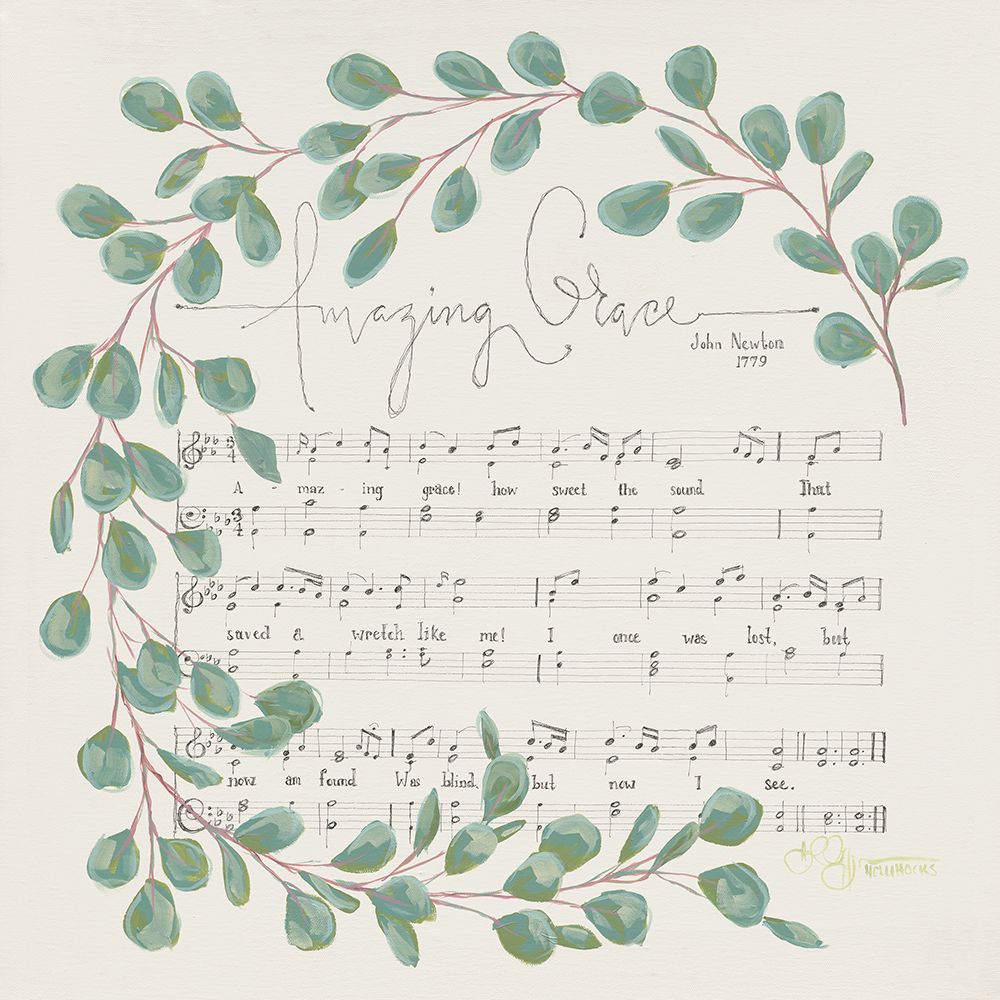 Amazing Grace
John Newton
1779
3
4
A - maz - ing grace! how sweet the sound That
3
4
saved a wretch like me! I once was lost, but
now am found Was blind, but now I see.